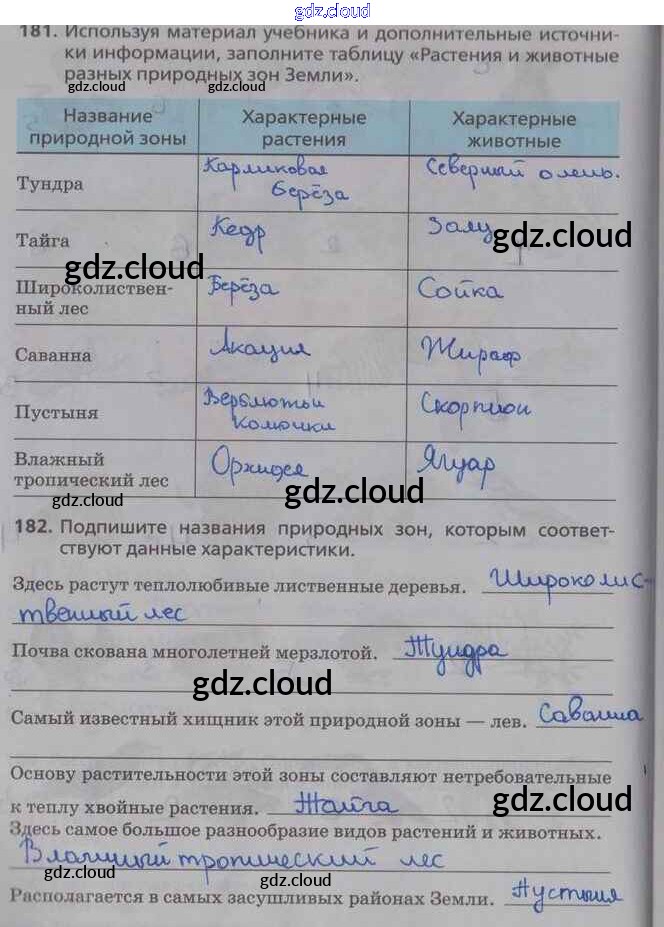 gdz.cloud
181. Используя материал учебника и дополнительные источни-
ки информации, заполните таблицу «Растения и животные
разных природных зон Земли».
gdz.cloud gdz.cloud
Название природной зоны Характерные растения Характерные животные
Тундра Карликовая берёза Северный олень.
Тайга Кедр Заяц
gdz.cloud gdz.cloud
Широколиствен-
ный лес Берёза Сойка
Саванна Акация Жираф
Пустыня Верблюжьи колючки Скорпион
Влажный
тропический лес Орхидея Ягуар
gdz.cloud gdz.cloud
182. Подпишите названия природных зон, которым соответ-
ствуют данные характеристики.
Здесь растут теплолюбивые лиственные деревья. Широколис-
твенный лес
Почва скована многолетней мерзлотой. Тундра
gdz.cloud
Самый известный хищник этой природной зоны — лев. Саванна
Основу растительности этой зоны составляют нетребовательные
к теплу хвойные растения. Тайга
gdz.cloud
Здесь самое большое разнообразие видов растений и животных.
Влажный тропический лес
gdz.cloud gdz.cloud
Располагается в самых засушливых районах Земли. Пустыня